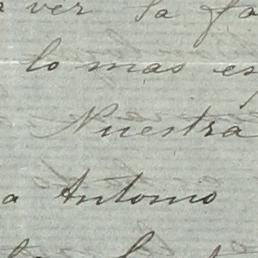 ver la fa
lo mas es
Nuestra
a Antonio